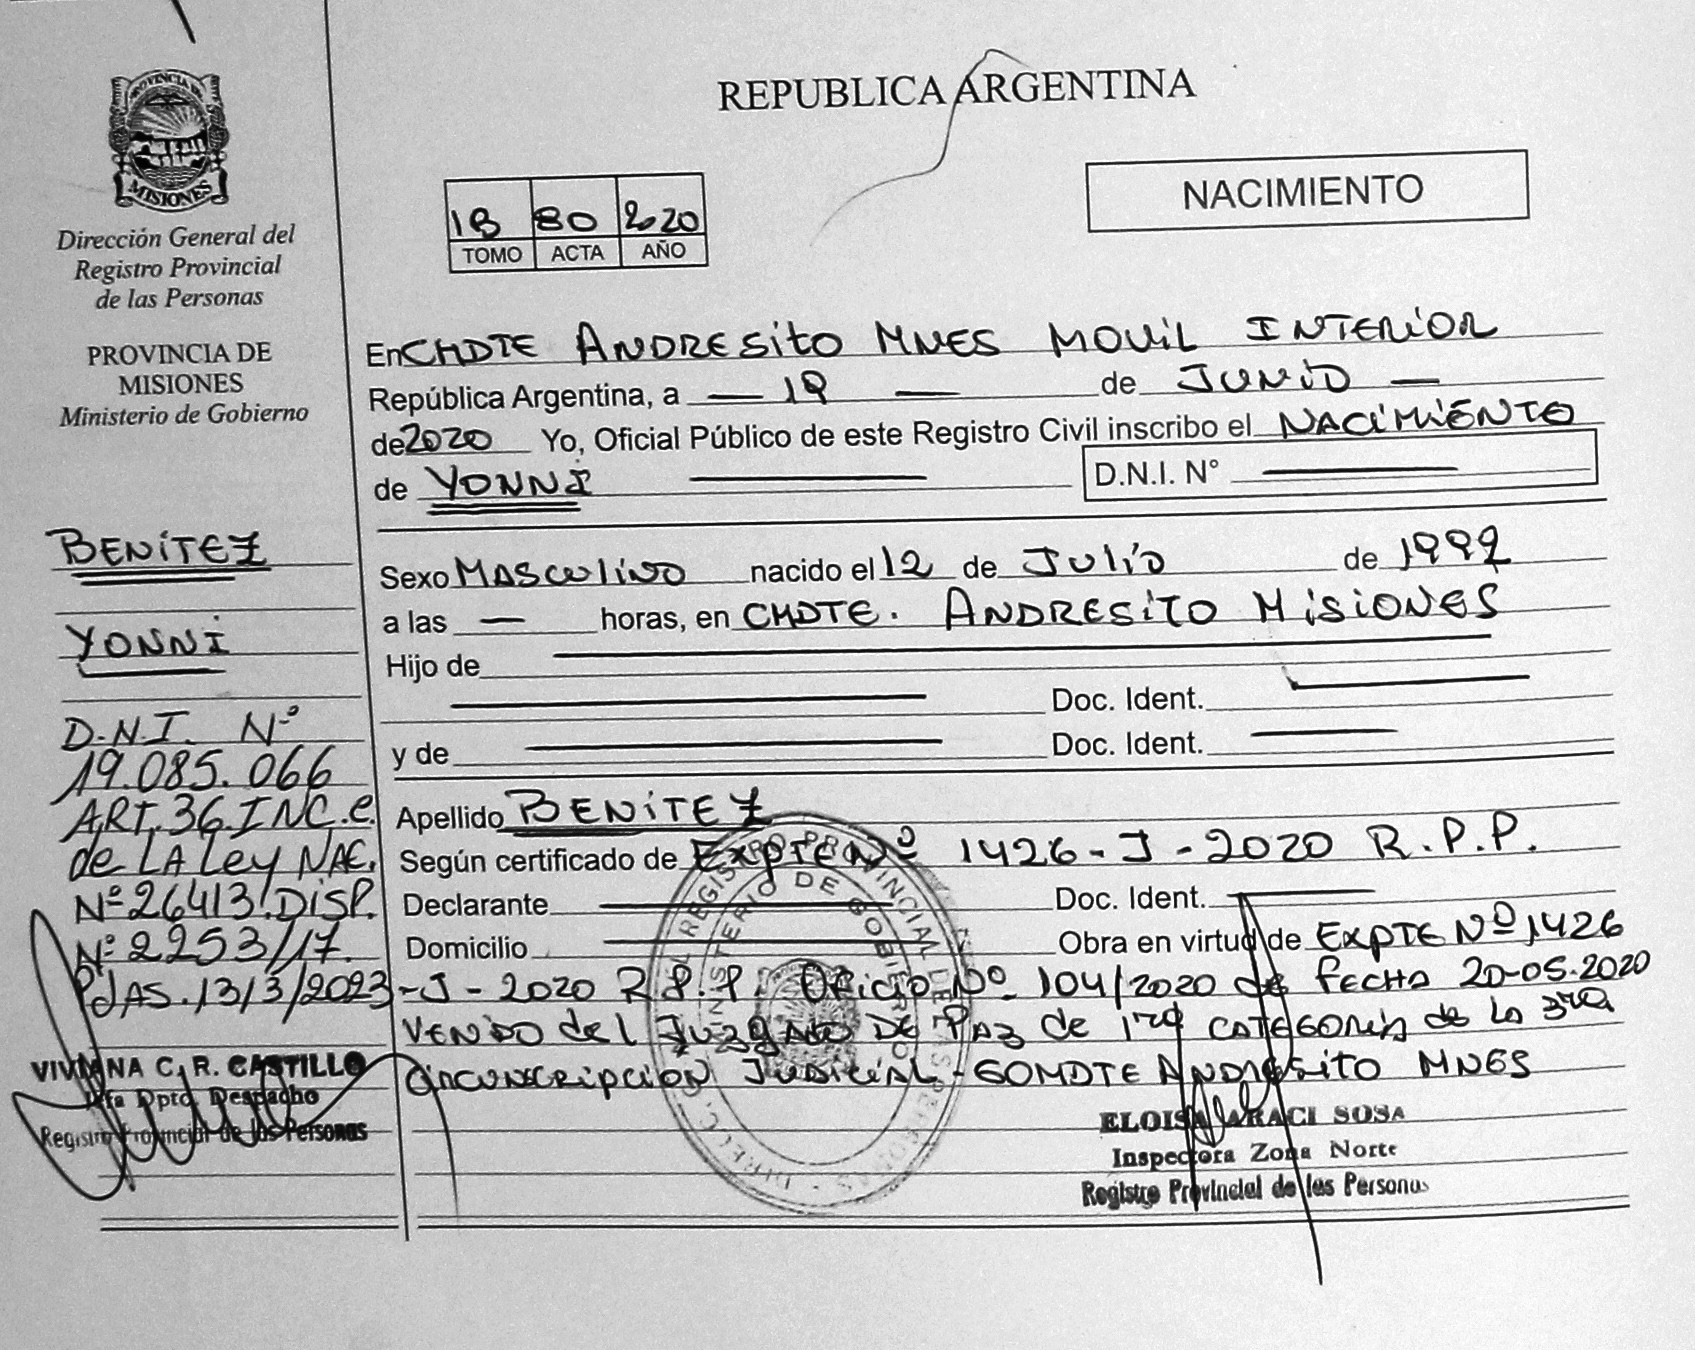 REPUBLICA ARGENTINA
NACIMIENTO
PROVINCIA DE
MISIONES
Dirección General del
Registro Provincial
de las Personas
PROVINCIA DE
MISIONES
Ministerio de Gobierno
1B 80 2020
TOMO ACTA AÑO
En CMDTE ANDRESITO MNES MOVIL INTERIOR
República Argentina, a — 19 — de JUNIO —
de 2020 Yo, Oficial Público de este Registro Civil inscribo el NACIMIENTO
de YONNI D.N.I. N°
BENITEZ
YONNI
D.N.I. Nº
19.085.066
ART. 36. INC. c.
de LA Ley NAC.
Nº 26413. DISP.
Nº 2253/17.
PdAS. 13/3/2023
VIVIANA C. R. CASTILLO
Jfa Dpto. Despacho
Registro Provincial de las Personas
Sexo MASCULINO nacido el 12 de JULIO de 1992
a las — horas, en CMDTE. ANDRESITO MISIONES
Hijo de
Doc. Ident.
y de Doc. Ident.
Apellido BENITEZ
Según certificado de EXPTE Nº 1426-J-2020 R.P.P.
Declarante Doc. Ident.
Domicilio Obra en virtud de EXPTE Nº 1426
-J-2020 R.P.P. OFICIO Nº 104/2020 de FECHA 20-05-2020
VENIDO del JUZGADO DE PAZ de 1ra CATEGORIA de LA 3ra
CIRCUNSCRIPCION JUDICIAL - COMDTE ANDRESITO MNES
ELOISA ARACI SOSA
Inspectora Zona Norte
Registro Provincial de las Personas
DIRECC. REGISTRO PROVINCIAL DE LAS PERSONAS
MINISTERIO DE GOBIERNO